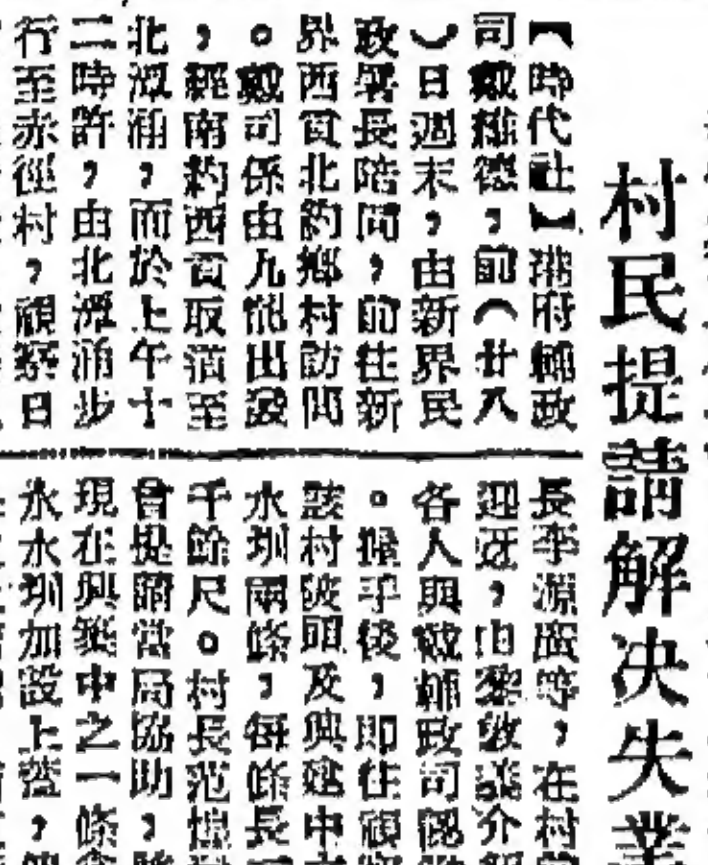 村民提請解決失業
【時代社】港府輔政
司戴維德，前（廿八
）日週末，由新界民
政署長陪同，前往新
界西貢北約鄉村訪問
。戴司係由九龍出發
，經南約西貢取道至
北潭涌，而於上午十
二時許，由北潭涌步
行至赤徑村，視察日
長李源 等，在村
迎迓，由黎敦義介
各人與戴輔政司
。握手後，即往視
該村陂頭及興建中
水圳兩條，每條長
千餘尺。村長范
曾提請當局協助，
現在興築中之一條
水圳加設上蓋，